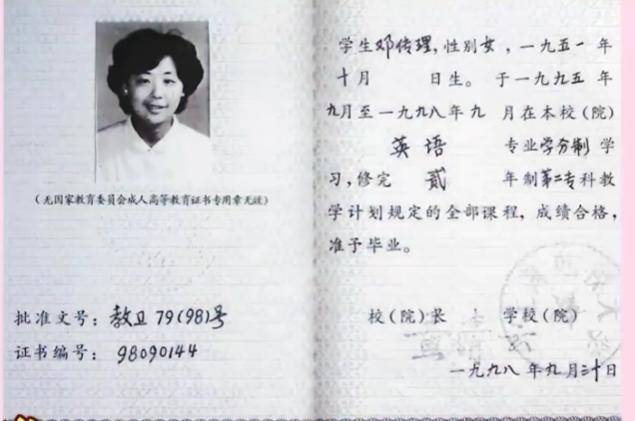 (无国家教育委员会成人高等教育证书专用章无效)
批准文号：教卫79(98)号
证书编号：98090144
学生邓传理，性别女，一九五一年
十月 日生。于一九九五年
九月至一九九八年九月在本校(院)
英语 专业学分制学
习，修完 贰 年制第二专科教
学计划规定的全部课程，成绩合格，
准予毕业。
校(院)长 学校(院)
一九九八年九月三十日